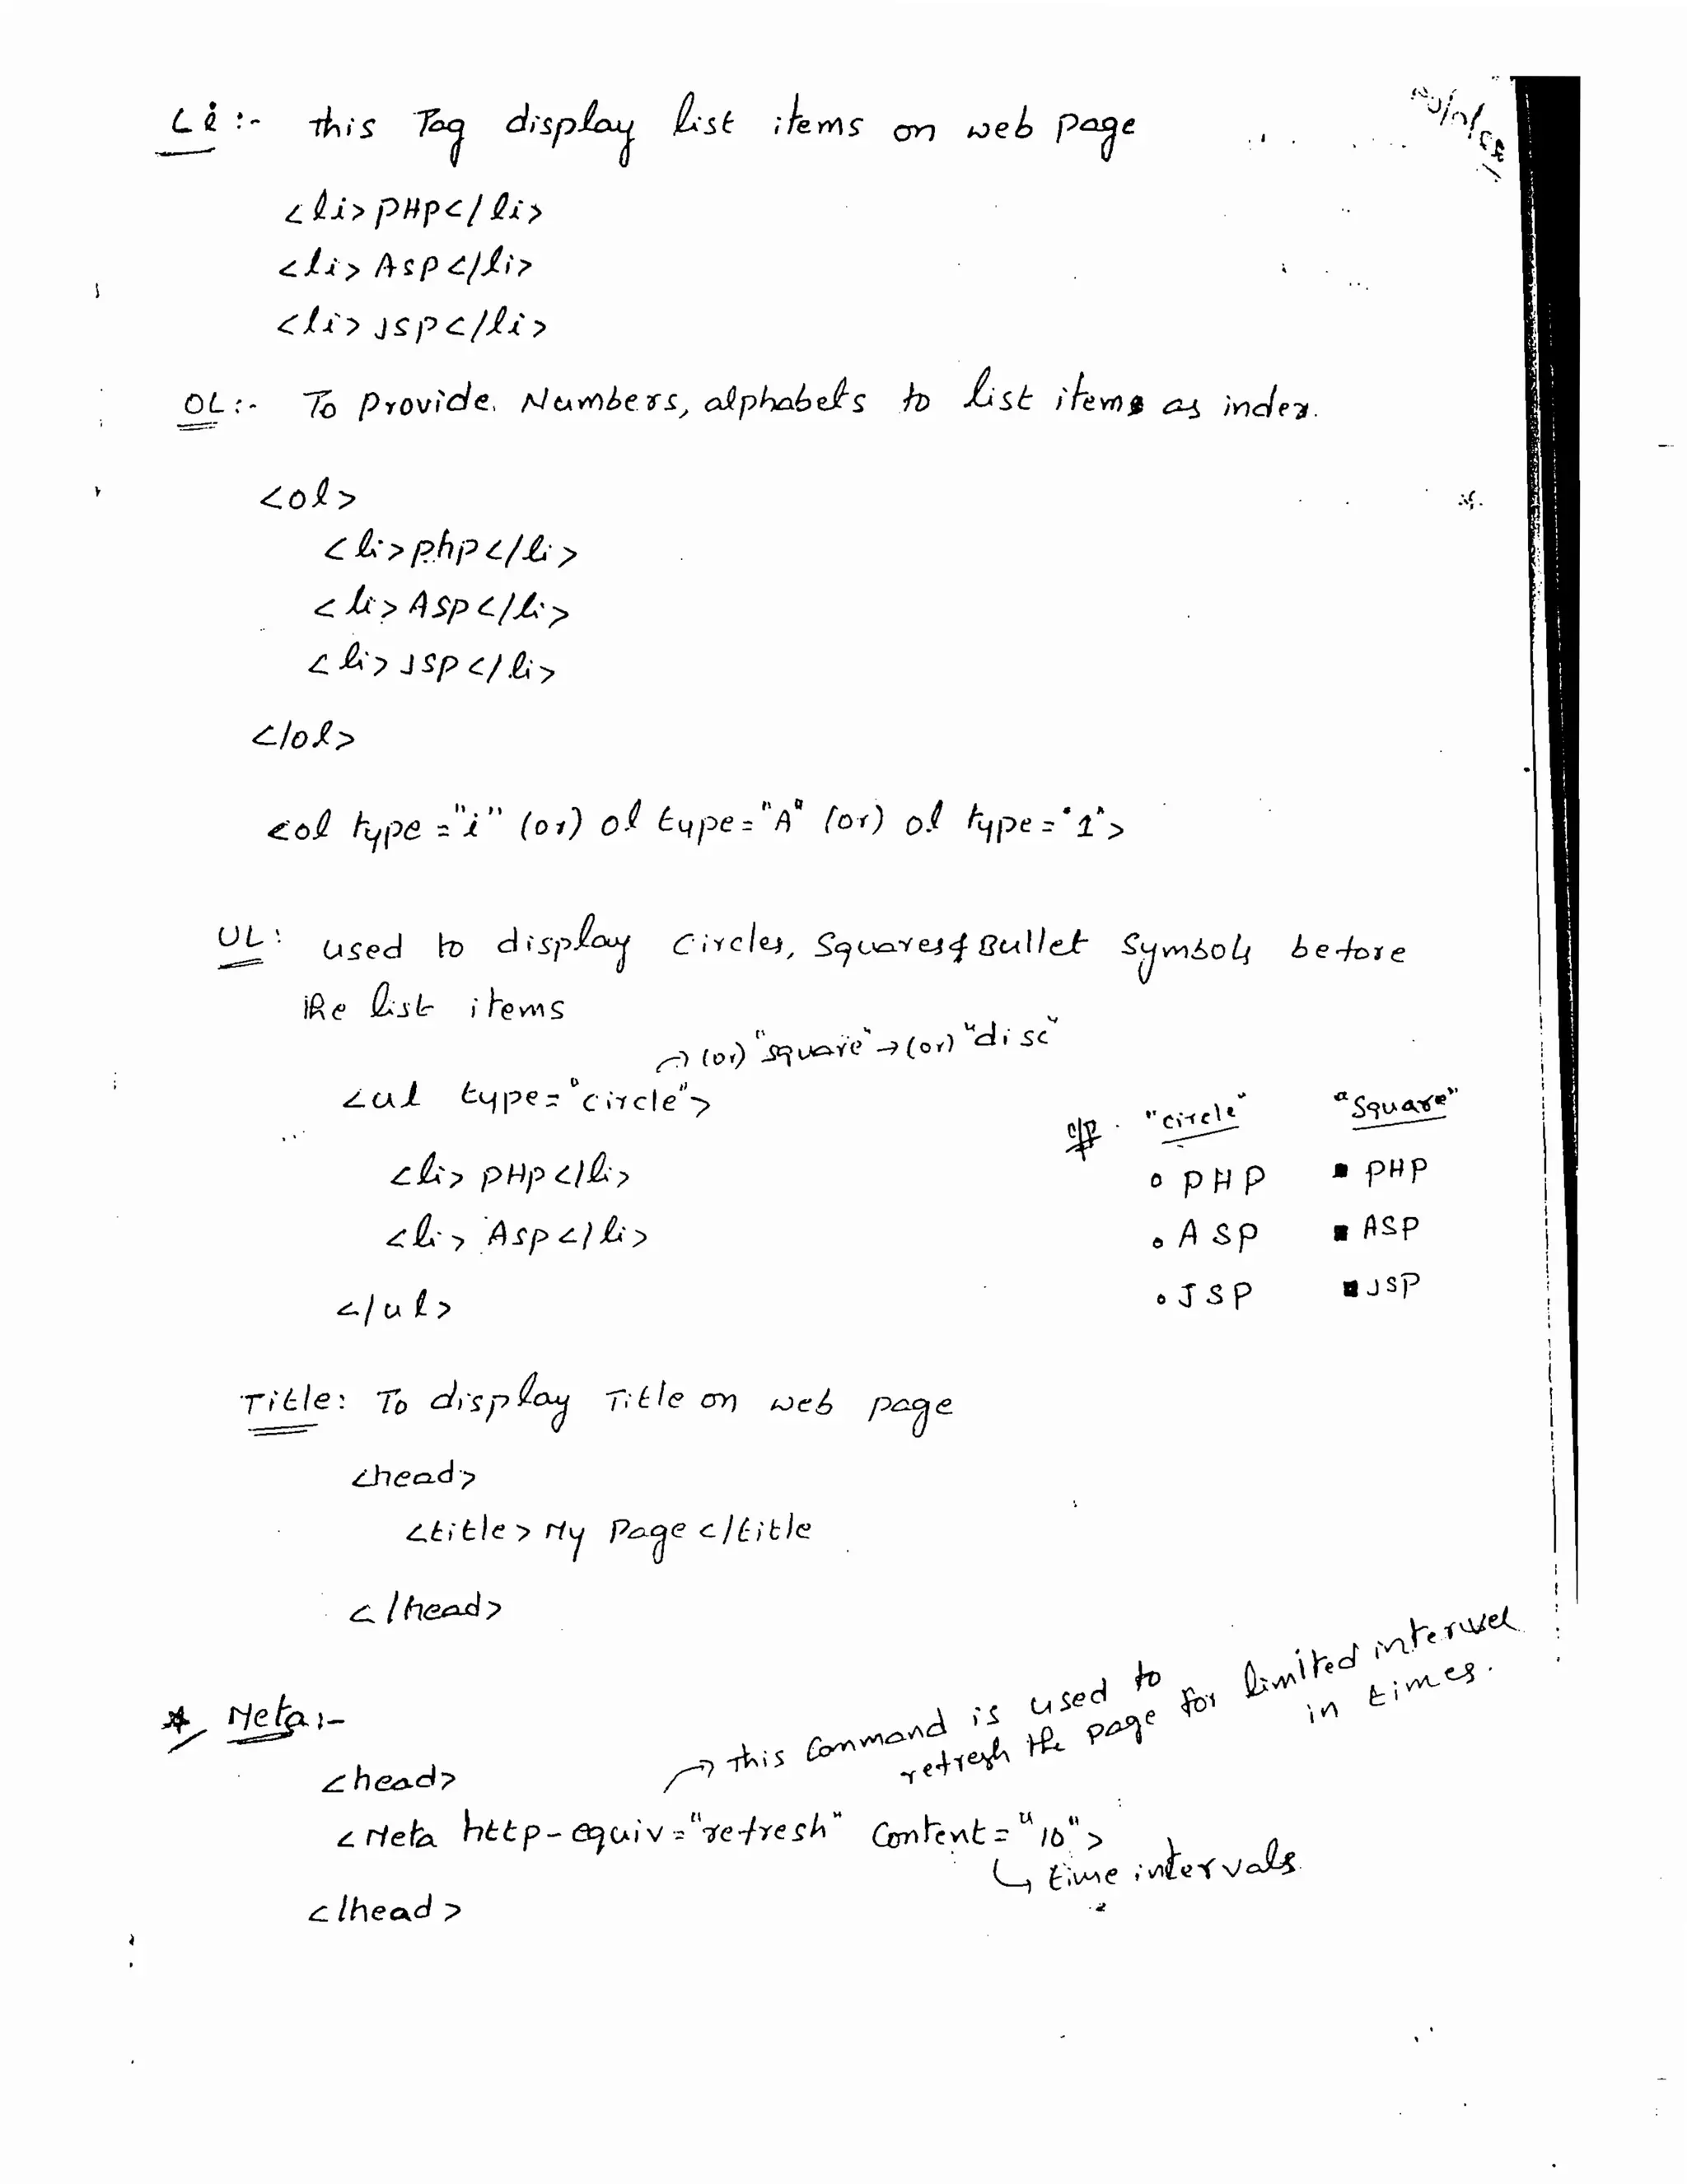 Li :- this Tag display list items on web page
<li> PHP </li>
<li> ASP </li>
<li> JSP </li>
OL :- To Provide Numbers, alphabets to list items as index.
<ol>
<li> php </li>
<li> ASP </li>
<li> JSP </li>
</ol>
<ol type = "i" (or) ol type = "A" (or) ol type = "1">
UL : used to display circles, Squares & Bullet Symbols before
the list items
→ (or) "square" → (or) "disc"
<ul type = "circle">
<li> PHP </li>
<li> ASP </li>
</ul>
o/p "circle" "Square"
o PHP ▪ PHP
o ASP ▪ ASP
o JSP ▪ JSP
Title : To display Title on web page
<head>
<title> My Page </title
</head>
* Meta :-
→ This Command is used to
refresh the page for limited intervel
in times.
<head>
<Meta http-equiv = "refresh" Content = "10">
↳ time intervals.
</head>